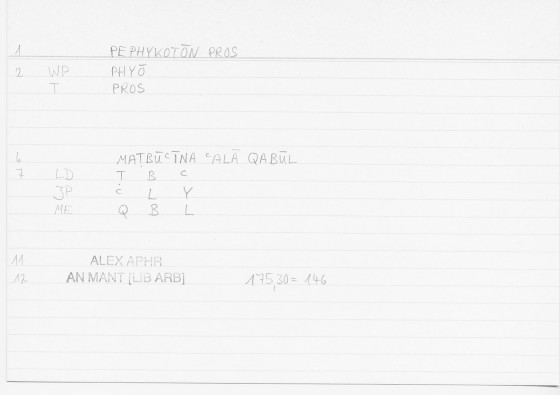 1 PEPHYKOTŌN PROS
2 WP PHYŌ
T PROS
6 MAṬBŪᶜĪNA ᶜALĀ QABŪL
7 LD Ṭ B ᶜ
JP ᶜ L Y
ME Q B L
11 ALEX APHR
12 AN MANT [LIB ARB] 175,30 = 146